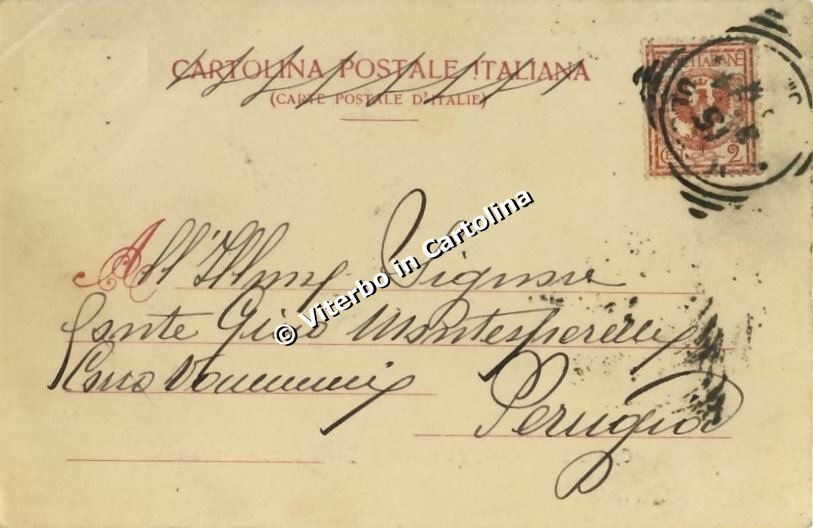 CARTOLINA POSTALE ITALIANA
(CARTE POSTALE D'ITALIE)
POSTE ITALIANE
CENT. 2
All'Illmo Signore
Conte Gino Montesperelli
Corso Vannucci
Perugia
© Viterbo in Cartolina